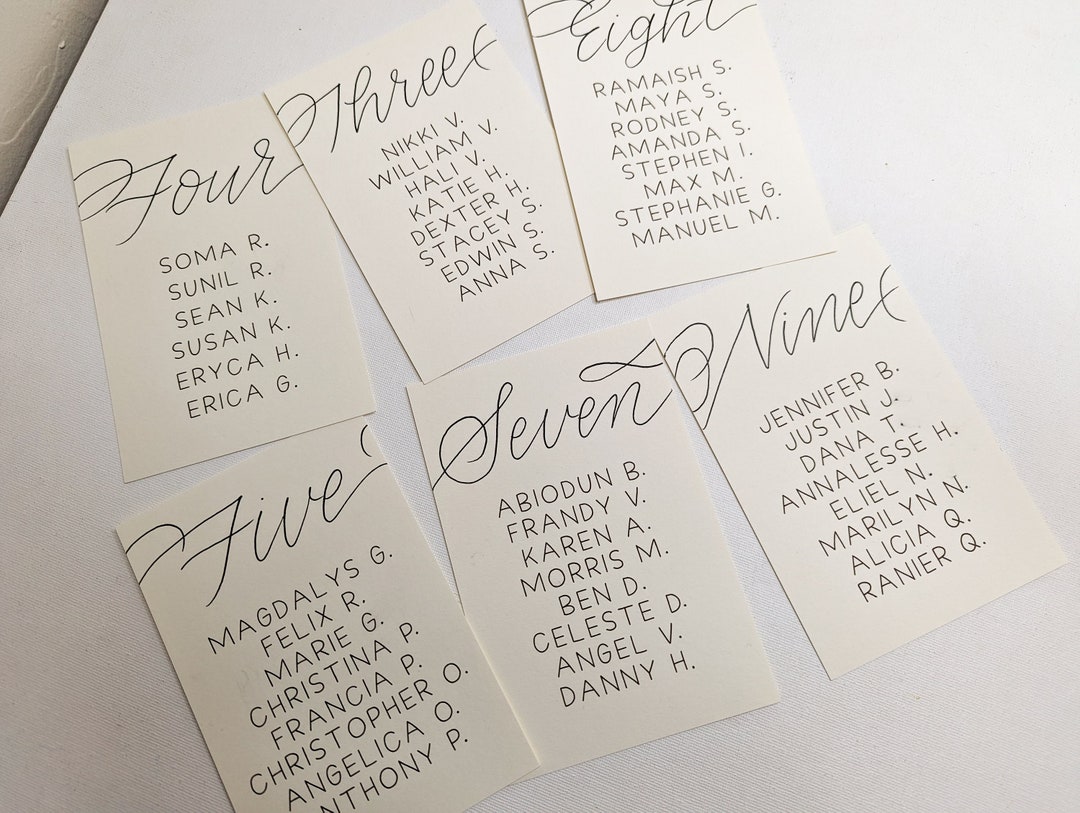 Four
SOMA R.
SUNIL R.
SEAN K.
SUSAN K.
ERYCA H.
ERICA G.
Three
NIKKI V.
WILLIAM V.
HALI V.
KATIE H.
DEXTER H.
STACEY S.
EDWIN S.
ANNA S.
Eight
RAMAISH S.
MAYA S.
RODNEY S.
AMANDA S.
STEPHEN I.
MAX M.
STEPHANIE G.
MANUEL M.
Five
MAGDALYS G.
FELIX R.
MARIE G.
CHRISTINA P.
FRANCIA P.
CHRISTOPHER O.
ANGELICA O.
NTHONY P.
Seven
ABIODUN B.
FRANDY V.
KAREN A.
MORRIS M.
BEN D.
CELESTE D.
ANGEL V.
DANNY H.
Nine
JENNIFER B.
JUSTIN J.
DANA T.
ANNALESSE H.
ELIEL N.
MARILYN N.
ALICIA Q.
RANIER Q.